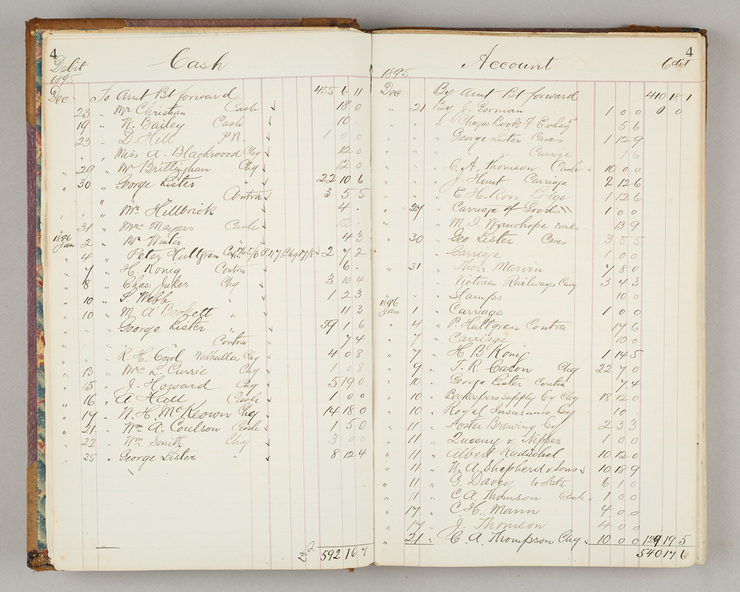 4
Debit
Cash
1895
Dec To Amt Bt forward 455 6 11
23 " Mr Christian Cash 18 0
19 " W. Bailey Cash 10
23 " D. Hill P.N. 1 0 0
" Miss A. Blackwood Chq 12 0
" 29 " Mr Brittingham Chq 12 0
" 30 " George Lister " 22 10 6
" " Contra 3 5 5
" Mr Hillbrick 4
" 31 " Cash
1896
Jan 2 " Mr Winter 4 3
" 4 " Peter Hallgren 2 7 2
" 7 " H. Konig Contra 6
" 8 " Chas Jukes Chq 3 10 4
" 10 " S. Webb " 1 2 3
" 10 " M. A. " 11 3
" George Lister " 39 1 6
" " Contra 7 4
" R. H. Chq 4 0 8
" 13 " Mrs L. Currie Chq 1 0 8
" 15 " J. Howard Chq 5 19 0
" 16 " A Hall Cash 1 0 0
" 17 " W. H. McKeown Chq 14 18 0
" 21 " Wm A. Coulson Cash 1 5 0
" 22 " Wm Smith Chq 3 0 0
" 25 " George Lister " 8 12 4
£ 592 16 7
4
Account
Cdit
1895
Dec By Amt Bt forward 410 18 1
" 21 By J. Gorman 1 0 0
" 5 6
" George Lister Cases 1 12 9
" Carriage 1 6
" C. A. Thomson Cash 10 0 0
" J. Hunt Carriage 2 12 6
" 1 12 6
" 24 " Carriage of Goods 1 0 0
" 13 9
" 30 " Geo Lister Cases 3 5 5
" Carriage 1 0 0
" 31 " Marvin 7 8 0
" Victorian Railways Chq 3 4 3
" Stamps 10 0
1896
Jan 1 " Carriage 1 0 0
" 4 " P. Hallgren Contra 17 6
" 7 " Carriage 10 0
" 7 " H. B. Konig 1 14 5
" 9 " J. R. Caton Chq 22 7 0
" 10 " George Lister Contra 7 4
" 10 " Beekeepers Supply Co Chq 18 12 0
" 10 " Royal Insurance Coy 10
" 11 " Foster Brewing Coy 2 3 3
" 11 " 1 0 0
" 11 " Albert 10 12 0
" 11 " W. A. Shepherd & Sons 10 18 9
" 11 " G. Davey 6 1 0
" 11 " C. A. Thomson Cash 1 0 0
" 17 " C. H. Mann 4 0 0
" 17 " J. Thomson 4 0 0
" 21 " C. A. Thompson Chq 10 0 0 129 19 5
540 17 6